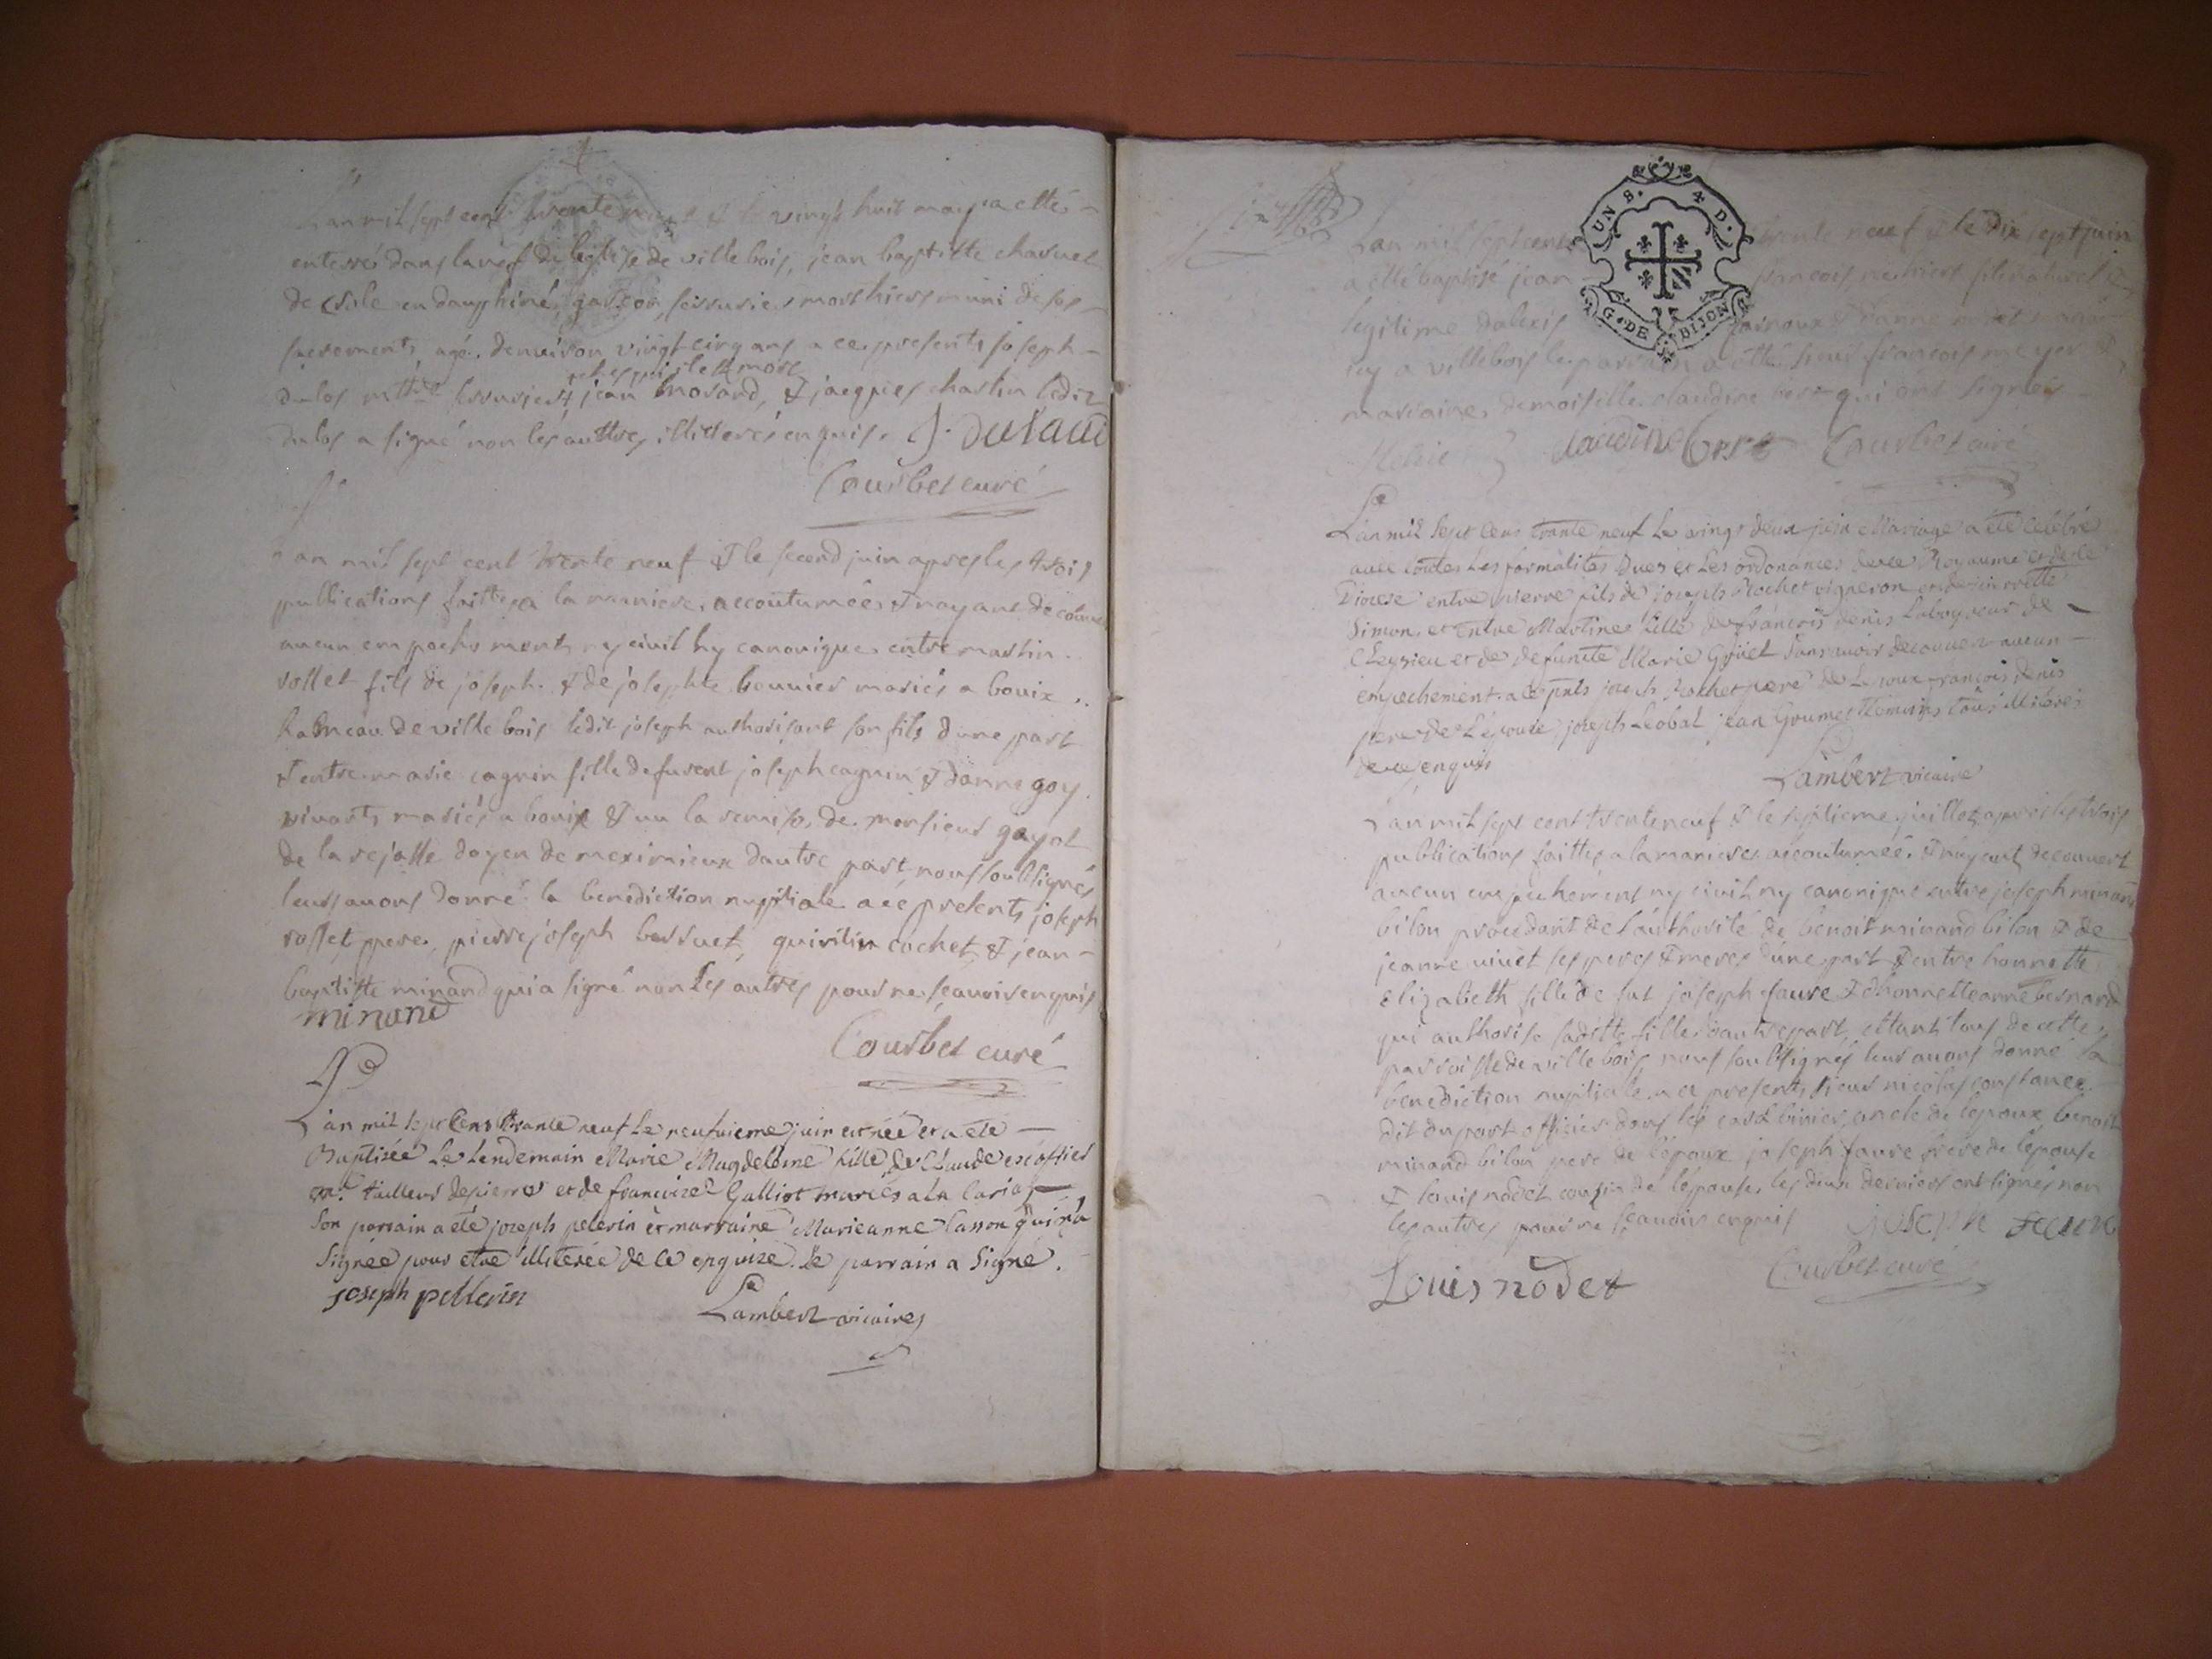 Lan mil sept cent trente neuf & le vingt huit may a etté
enterré dans la nef de leglise de villebois, jean baptiste charvet
de en dauphiné, garçon serrurier muni de ses
sacrements, agé denviron vingt cinq ans a ce presents joseph
dulas mtre serrurier chez qui il est mort jean morand, & jacques chastin ledit
dulas a signé non les auttres illitterés enquis. J. dulaud
Courbet curé
Lan mil sept cent trente neuf & le second juin apres les trois
publications faittes a la maniere accoutumée & nayant découvert
aucun empechement ny civil ny canonique entre martin
rosset fils de joseph & de josephte bouvier mariés a bouix
hameau de villebois ledit joseph authorisant son fils dune part
& entre marie cagnin fille defurent joseph cagnin & danne goy
vivants mariés a bouix & vu la remise de monsieur gayot
de la rejasse doyen de meximieux dautre part nous soussignés
leurs avons donné la benediction nuptiale a ce presents joseph
rosset pere, pierre joseph bessuet, quirin cochet & jean
baptiste minand qui a signé non les autres pour ne scavoir enquis
minand
Courbet curé
Lan mil sept cens trante neuf le neufvieme juin est née et a été
Baptisée le lendemain Marie Magdeleine fille de Claude escoffier
mre tailleur de pierres et de francoize Galliot mariés a la
Son parrain a été joseph pelerin et marraine Marieanne lasson qui n'a
Signée pour etre illiterée de ce enquize. le parrain a Signé.
joseph pellerin
Lambert vicaire
Lan mil sept cent trente neuf & le dix sept juin
a etté baptisé jean francois fils naturel &
legitime dalexis & danne
a villebois le parrain a etté sieur francois meyer
marraine demoiselle claudine brest qui ont signés
claudine brest Courbet curé
Lan mil sept cens trante neuf le vingt deux juin Mariage a été celebré
avec toutes les formalités Dues et les ordonances de ce Royaume et de ce
Diocese entre pierre fils de joseph Rochet vigneron et de pierrette
Simon, et entre Martine fille de françois denis laboureur de
et de defuncte Marie Goüet Sans avoir decouvert aucun
empechement. a ce pnts joseph Rochet pere de Lepoux françois denis
pere de Lépouse, joseph Léobal jean Groumet Temoins tous illiterés
de ce enquis
Lambert vicaire
Lan mil sept cent trente neuf & le septieme juillet apres les trois
publications faittes a la maniere accoutumée & nayant decouvert
aucun empechement ny civil ny canonique entre joseph minand
bilon procedant de l'authorité de benoit minand bilon & de
jeanne vivet ses peres & meres dune part & entre honnette
Elizabeth fille de fut joseph faure & dhonnette anne bernard
qui authorise laditte fille dautre part, ettants tous de cette
parroisse de villebois, nous soussignés leur avons donné la
benediction nuptiale a ce presents, sieur nicolas constance
dit duport officier dans les carabiniers, oncle de lepoux, benoit
minand bilon pere de lépoux joseph faure frere de lépouse
& louis nodet cousin de lépouse, les deux derniers ont signés non
les autres pour ne scavoir enquis joseph faure
Louis nodet Courbet curé
UN S. 4 D.
G. DE DIJON